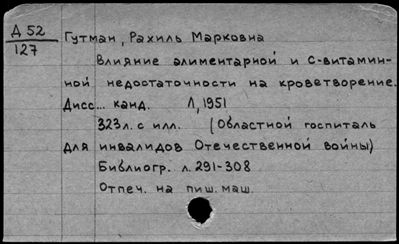 Д 52
127
Гутман, Рахиль Марковна
Влияние алиментарной и С-витамин-
ной недостаточности на кроветворение.
Дисс... канд. Л, 1951
323 л. с илл. (Областной госпиталь
для инвалидов Отечественной войны)
Библиогр. л. 291-308
Отпеч. на пиш. маш.